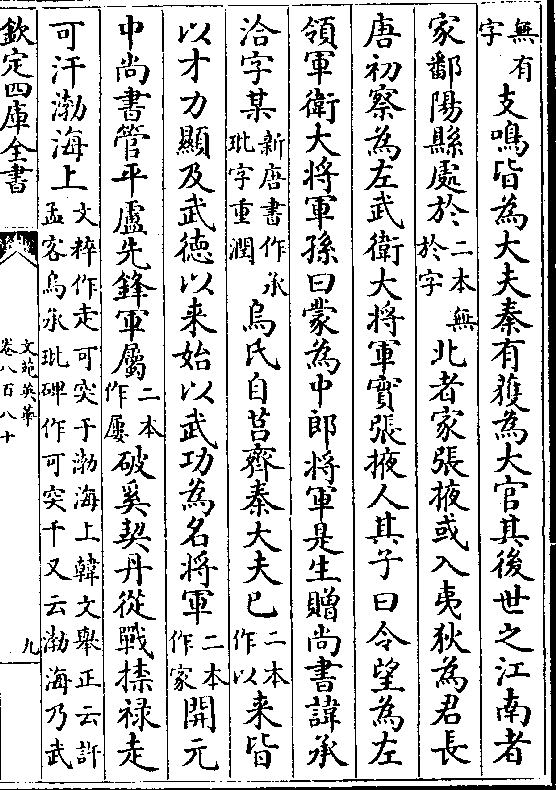 無有字支鳴皆為大夫秦有獲為大官其後世之江南者
家鄱陽縣處於二本無於字北者家張掖或入夷狄為君長
唐初察為左武衛大將軍實張掖人其子曰令望為左
領軍衛大將軍孫曰蒙為中郎將軍是生贈尚書諱承
洽字某新唐書作承玼字重潤烏氏自莒齊秦大夫已二本作以来皆
以才力顯及武德以来始以武功為名將軍二本作家開元
中尚書管平盧先鋒軍屬二本作屢破奚契丹從戰捺禄走
可汗渤海上文粹作走可突于渤海上韓文舉正云許孟容烏承玼碑作可突干又云渤海乃武
欽定四庫全書
文苑英華
卷八百八十
九